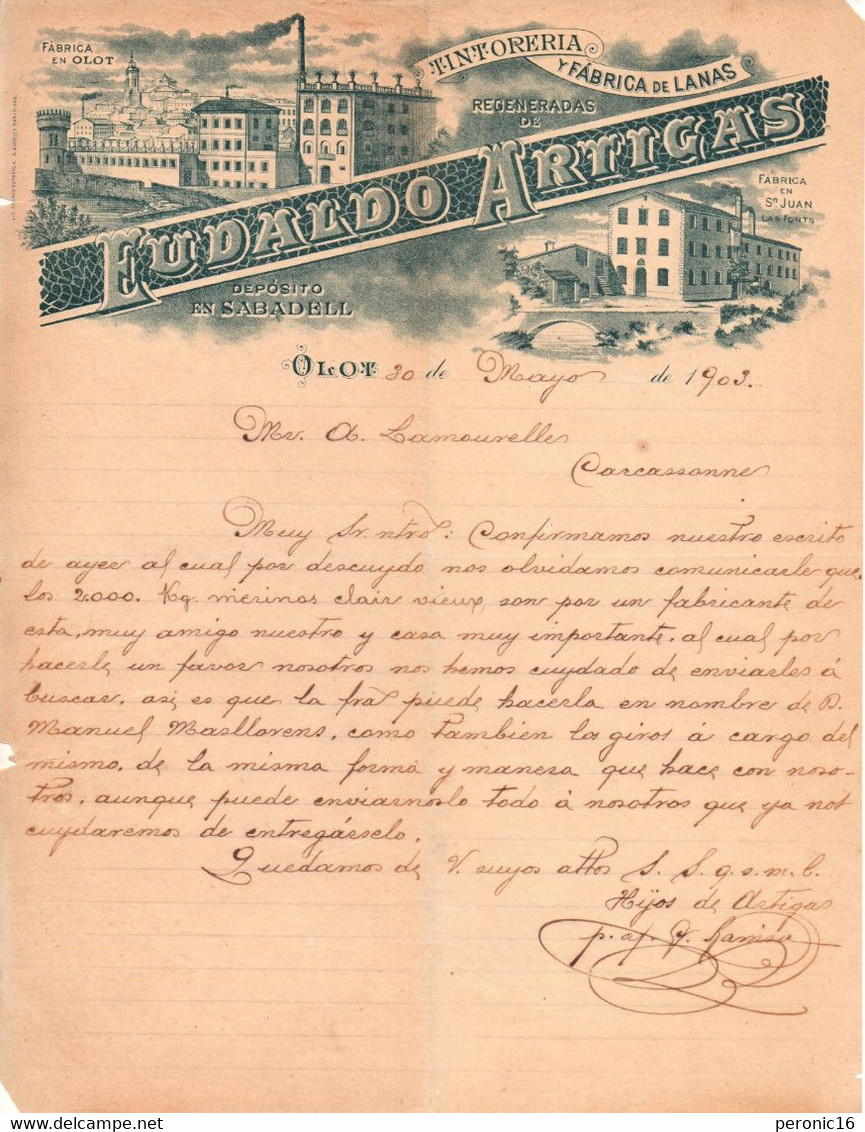 FÁBRICA
EN OLOT
TINTORERIA
Y FÁBRICA DE LANAS
REGENERADAS
DE
EUDALDO ARTIGAS
FÁBRICA
EN
Sn JUAN
LAS FONTS
DEPÓSITO
EN SABADELL
OLOT 30 de Mayo de 1903.
Mr. A. Lamourelle
Carcassonne
Muy Sr. ntro: Confirmamos nuestro escrito
de ayer al cual por descuydo nos olvidamos comunicarle que
los 2.000. Kg. merinos clair vieux, son por un fabricante de
esta, muy amigo nuestro y casa muy importante, al cual por
hacerle un favor nosotros nos hemos cuydado de enviarles á
buscar, asi es que la fra puede hacerla en nombre de D.
Manuel Masllorens, como tambien los giros á cargo del
mismo, de la misma forma y manera que hace con noso-
tros, aunque puede enviarnoslo todo á nosotros que ya nos
cuydaremos de entregárselo.
Quedamos de V. suyos attos S. S. q. s. m. b.
Hijos de Artigas
p. a.
peronic16